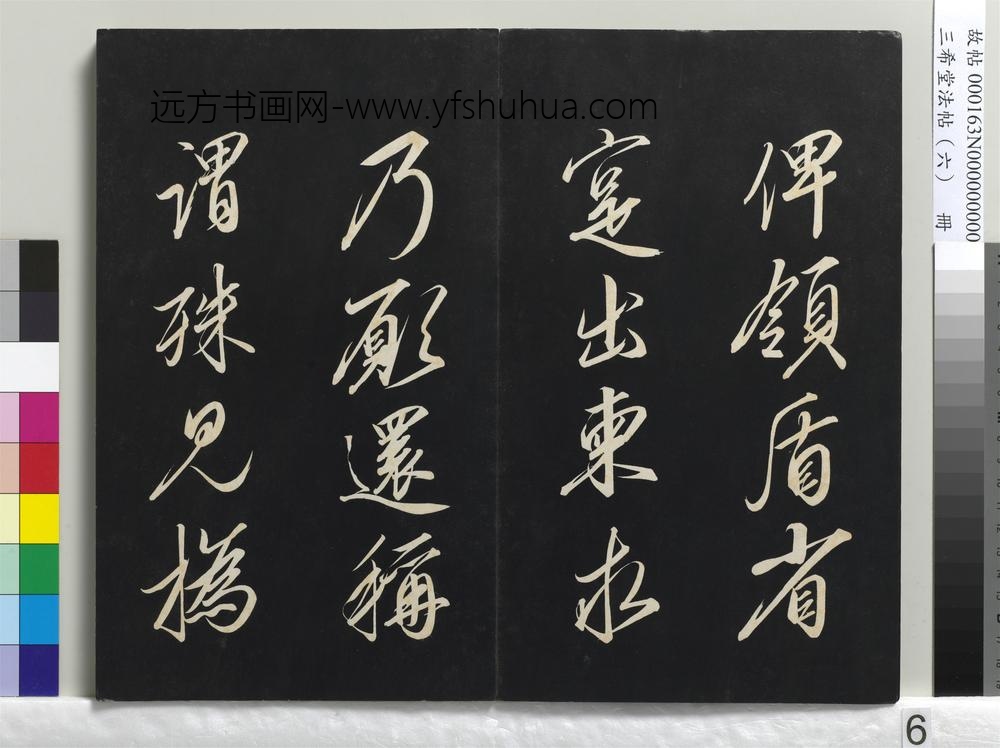 远方书画网-www.yfshuhua.com
俾領盾省
寔出柬求
乃還稱
謂殊見撝
故帖 000163N000000000
三希堂法帖（六） 冊
6